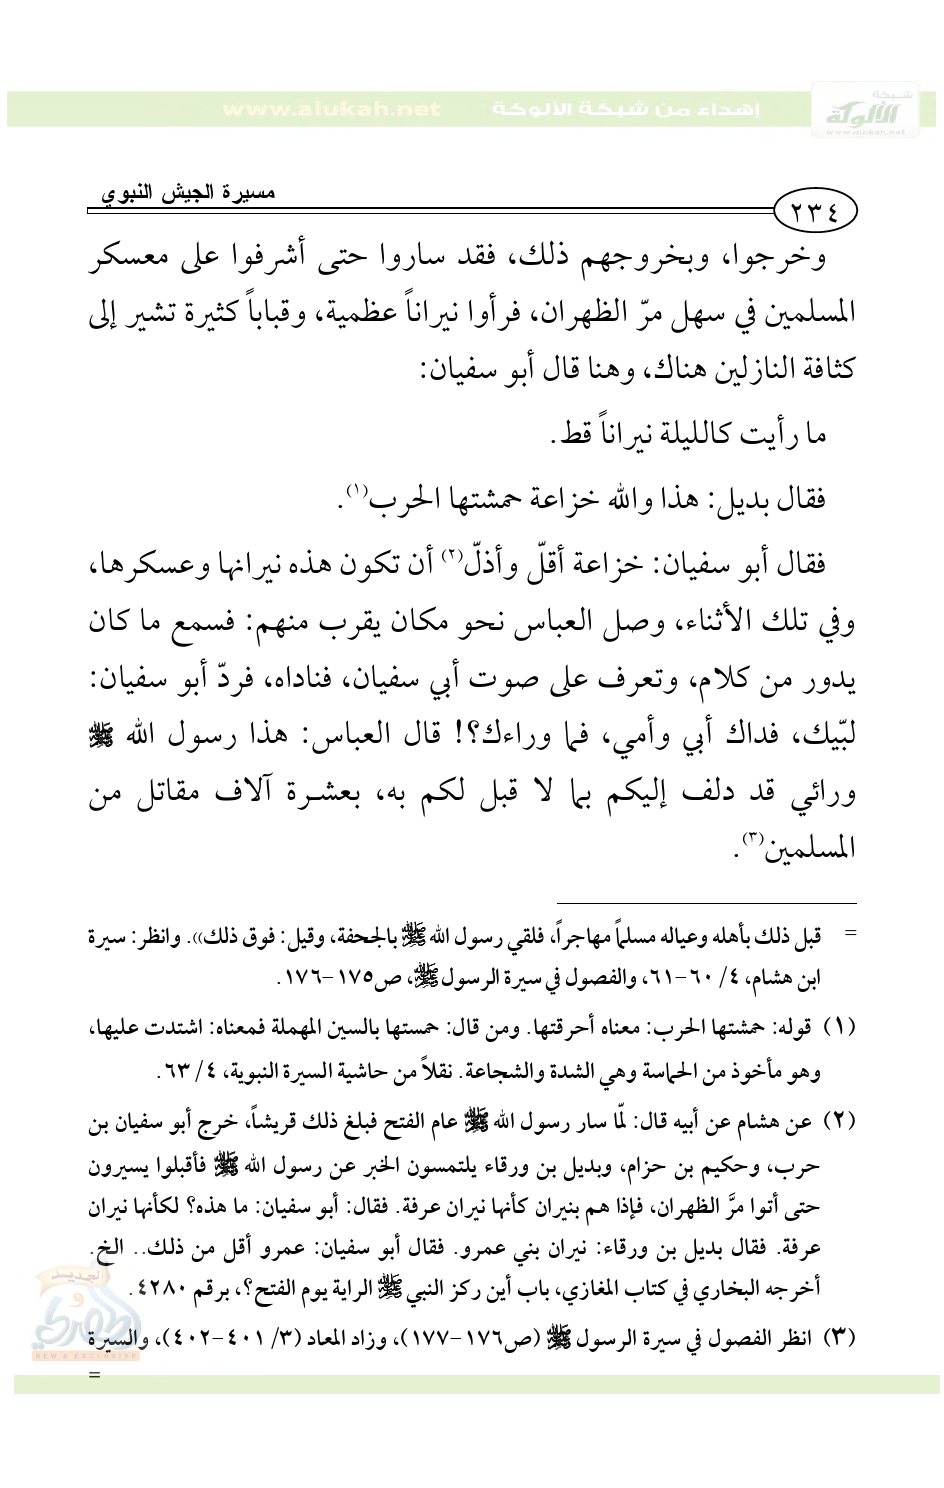 شبكة
الألوكة
www.alukah.net
إهداء من شبكة الألوكة www.alukah.net
مسيرة الجيش النبوي
٢٣٤
وخرجوا، وبخروجهم ذلك، فقد ساروا حتى أشرفوا على معسكر
المسلمين في سهل مرّ الظهران، فرأوا نيراناً عظمية، وقباباً كثيرة تشير إلى
كثافة النازلين هناك، وهنا قال أبو سفيان:
ما رأيت كالليلة نيراناً قط.
فقال بديل: هذا والله خزاعة حمشتها الحرب(١).
فقال أبو سفيان: خزاعة أقلّ وأذلّ(٢) أن تكون هذه نيرانها وعسكرها،
وفي تلك الأثناء، وصل العباس نحو مكان يقرب منهم: فسمع ما كان
يدور من كلام، وتعرف على صوت أبي سفيان، فناداه، فردّ أبو سفيان:
لبّيك، فداك أبي وأمي، فما وراءك؟! قال العباس: هذا رسول الله ﷺ
ورائي قد دلف إليكم بما لا قبل لكم به، بعشـرة آلاف مقاتل من
المسلمين(٣).
= قبل ذلك بأهله وعياله مسلماً مهاجراً، فلقي رسول الله ﷺ بالجحفة، وقيل: فوق ذلك)). وانظر: سيرة
ابن هشام، ٤/ ٦٠-٦١، والفصول في سيرة الرسول ﷺ، ص١٧٥-١٧٦.
(١) قوله: حمشتها الحرب: معناه أحرقتها. ومن قال: حمستها بالسين المهملة فمعناه: اشتدت عليها،
وهو مأخوذ من الحماسة وهي الشدة والشجاعة. نقلاً من حاشية السيرة النبوية، ٤/ ٦٣.
(٢) عن هشام عن أبيه قال: لمّا سار رسول الله ﷺ عام الفتح فبلغ ذلك قريشاً، خرج أبو سفيان بن
حرب، وحكيم بن حزام، وبديل بن ورقاء يلتمسون الخبر عن رسول الله ﷺ فأقبلوا يسيرون
حتى أتوا مرَّ الظهران، فإذا هم بنيران كأنها نيران عرفة. فقال: أبو سفيان: ما هذه؟ لكأنها نيران
عرفة. فقال بديل بن ورقاء: نيران بني عمرو. فقال أبو سفيان: عمرو أقل من ذلك.. الخ.
أخرجه البخاري في كتاب المغازي، باب أين ركز النبي ﷺ الراية يوم الفتح؟، برقم ٤٢٨٠.
(٣) انظر الفصول في سيرة الرسول ﷺ (ص١٧٦-١٧٧)، وزاد المعاد (٣/ ٤٠١-٤٠٢)، والسيرة
=
الجديد
و
الحصري
NEW & EXCLUSIVE